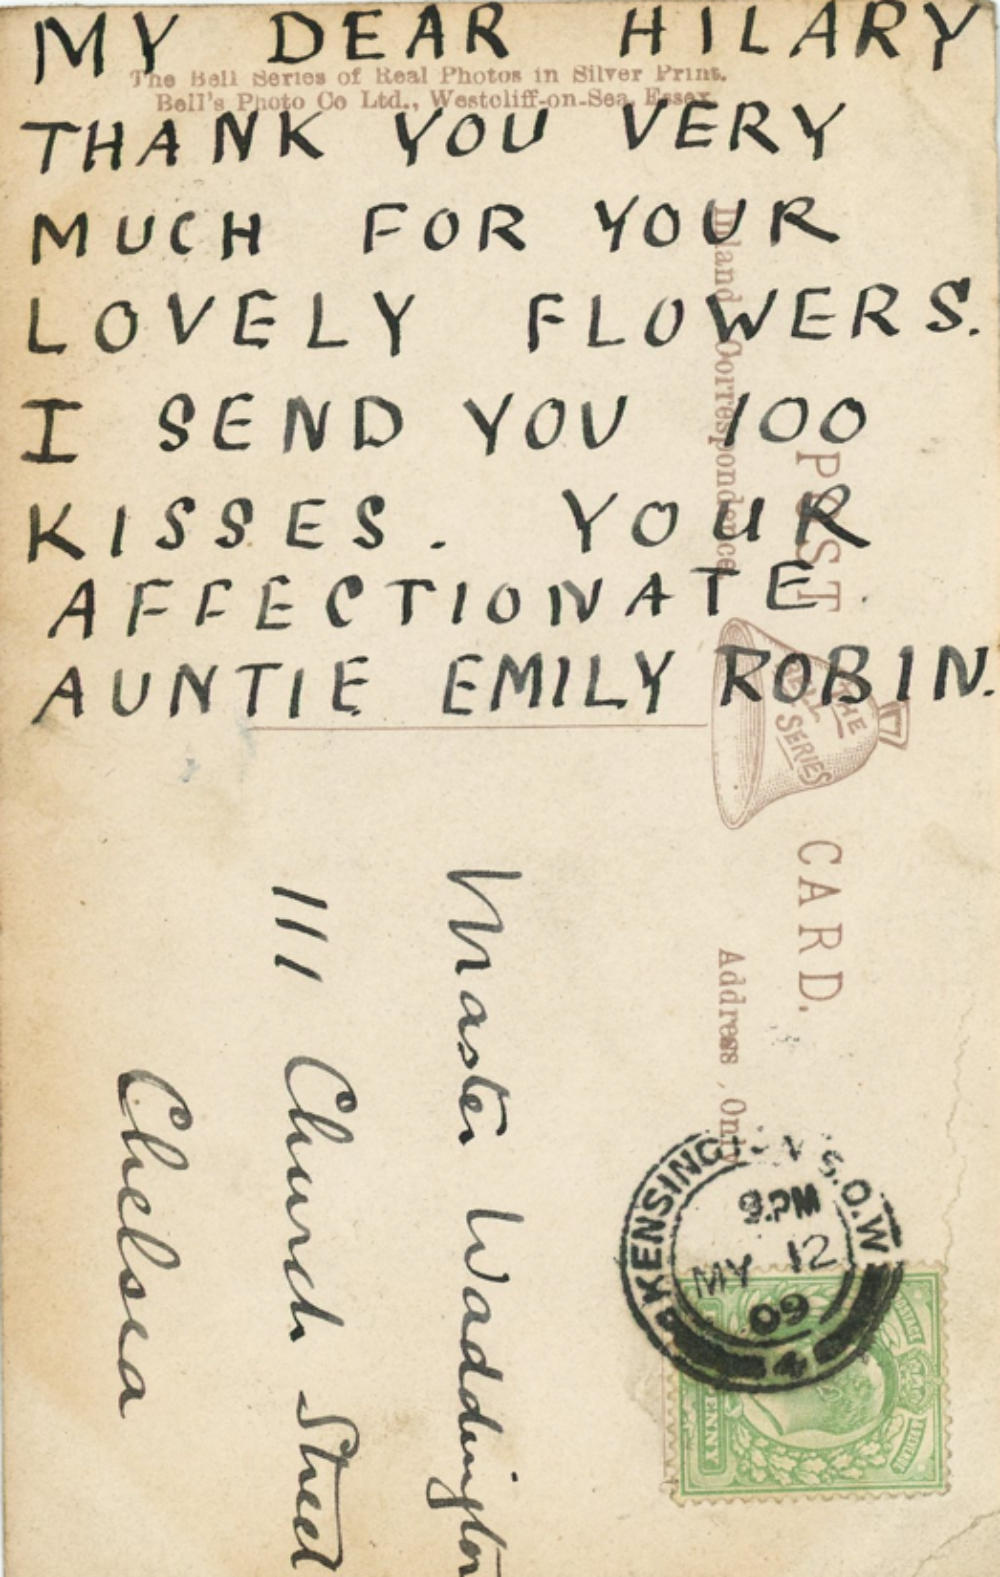 MY DEAR HILARY
The Bell Series of Real Photos in Silver Print.
Bell's Photo Co Ltd., Westcliff-on-Sea, Essex.
THANK YOU VERY
MUCH FOR YOUR
LOVELY FLOWERS.
I SEND YOU 100
KISSES. YOUR
AFFECTIONATE
AUNTIE EMILY ROBIN.
POST CARD.
THE
BELL
SERIES
Inland Correspondence
Address Only
Master Waddington
111 Church Street
Chelsea
KENSINGTON S.O.W
9.PM
MY 12
09
4
POSTAGE
PENNY